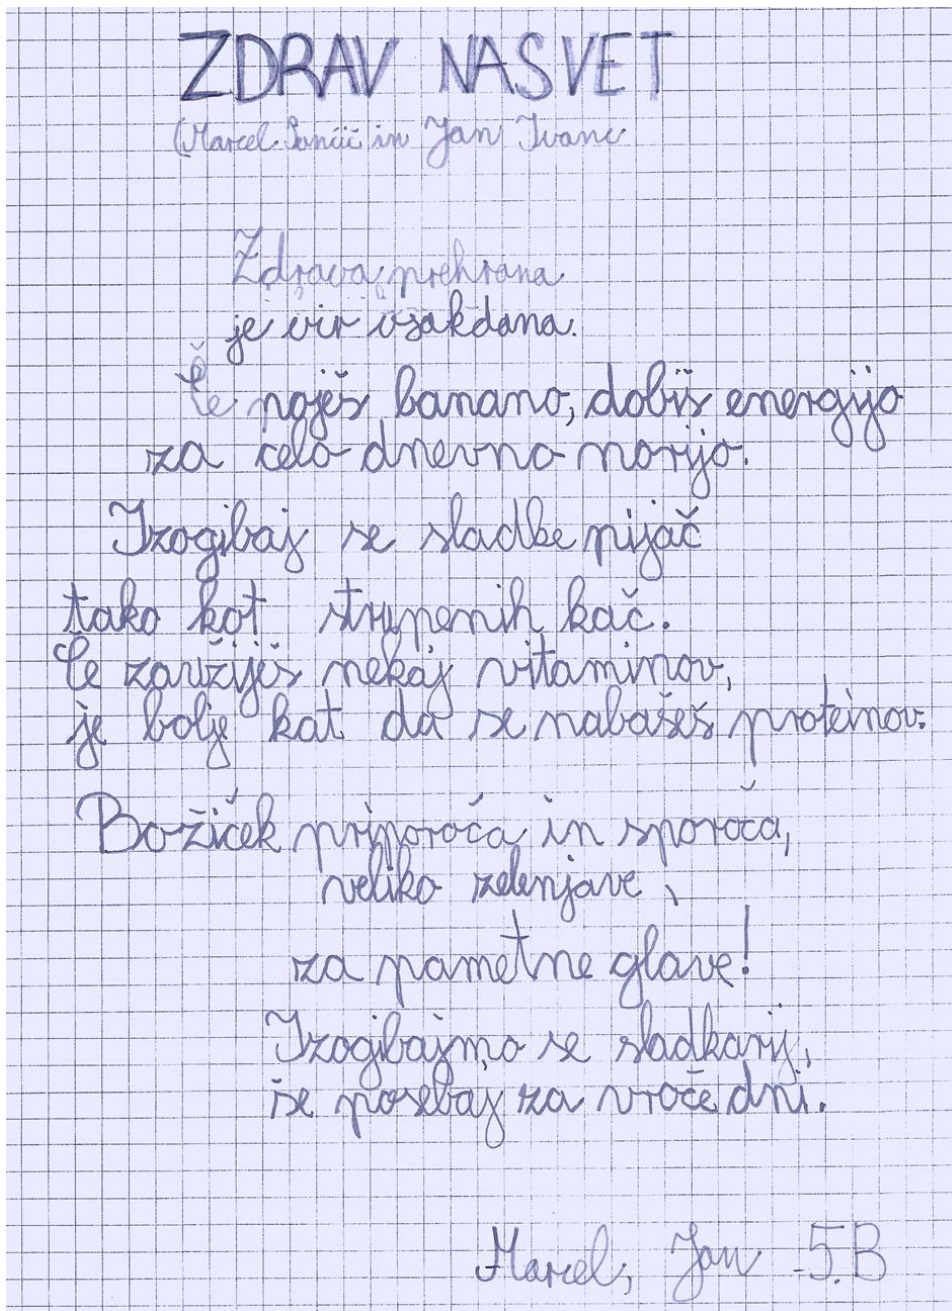 ZDRAV NASVET
(Marcel in Jan Ivanc
Zdrava prehrana
je vir vsakdana.
Če poješ banano, dobiš energijo
za celo dnevno norijo.
Izogibaj se sladke pijač
tako kot strupenih kač.
Če zaužiješ nekaj vitaminov,
je bolje kat da se nabašeš proteinov.
Božiček priporoča in sporoča,
veliko zelenjave,
za pametne glave!
Izogibajmo se sladkarij,
še posebaj za vroče dni.
Marcel, Jan 5.B